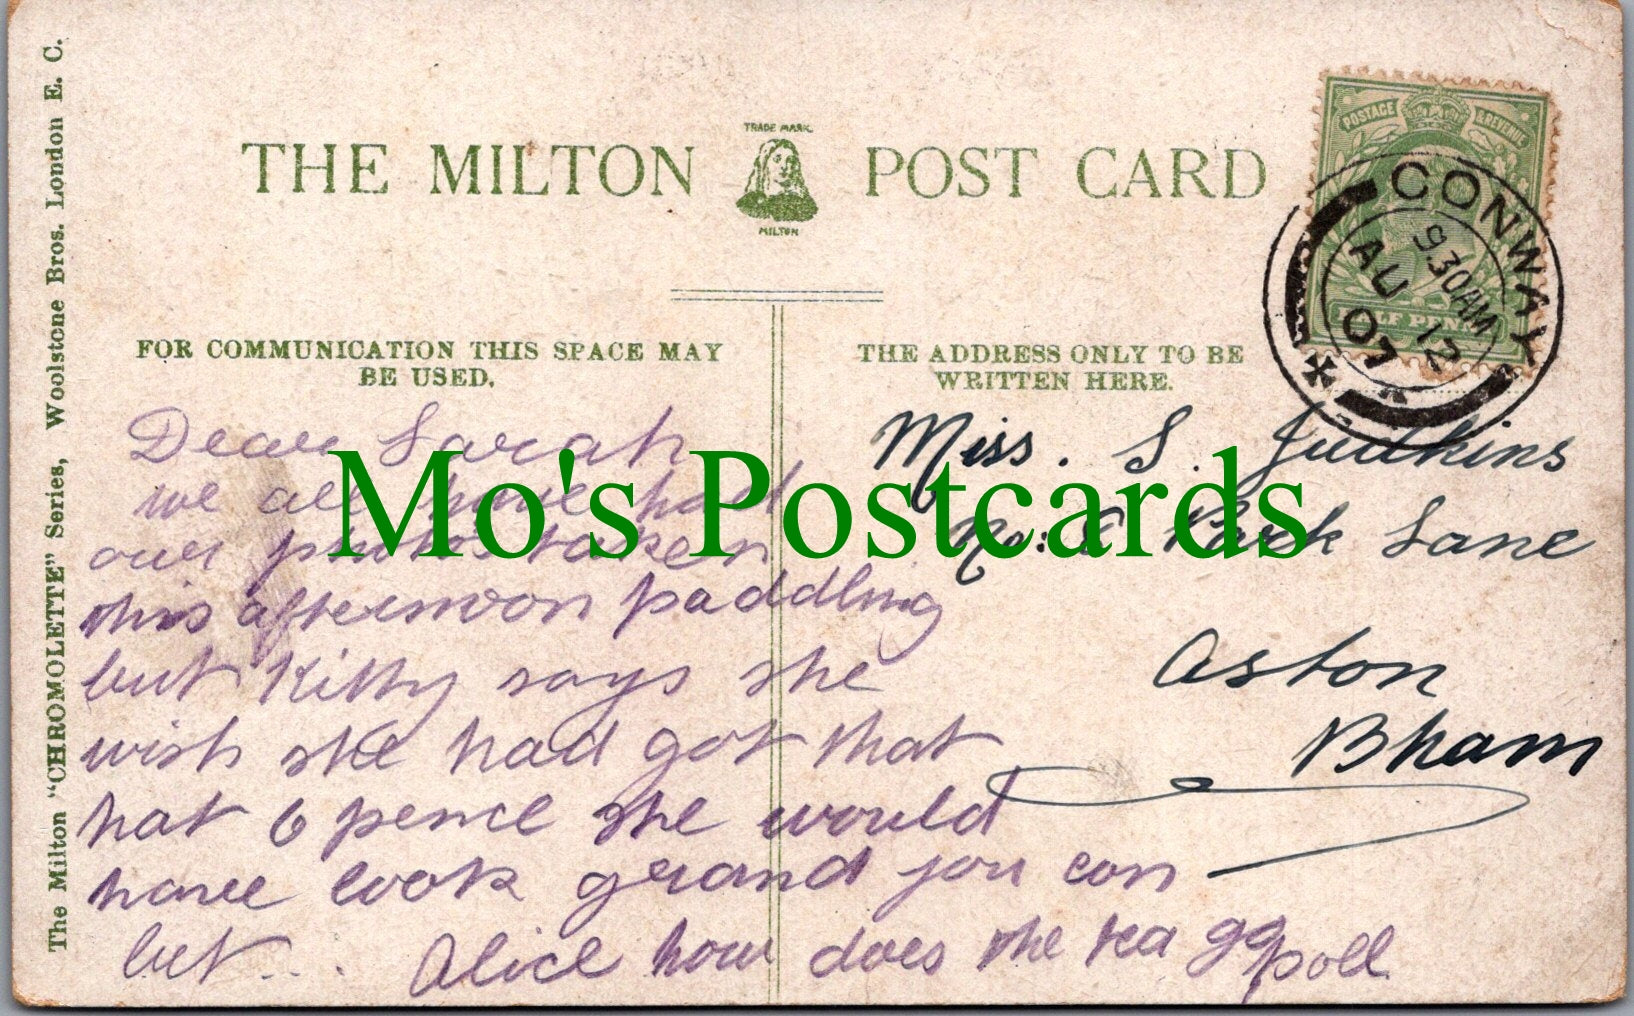 The Milton "CHROMOLETTE" Series, Woolstone Bros. London E. C.
THE MILTON POST CARD
TRADE MARK.
MILTON
POSTAGE & REVENUE
HALF PENNY
CONWAY
9.30AM
AU 12
07
FOR COMMUNICATION THIS SPACE MAY
BE USED.
THE ADDRESS ONLY TO BE
WRITTEN HERE.
Dear Sarah
we all have had
our photos taken
this afternoon paddling
but Kitty says she
wish she had got that
hat 6 pence she would
have look grand you can
bet... Alice how does the tea poll
Miss. S. Judkins
No: Park Lane
Aston
Bham
Mo's Postcards